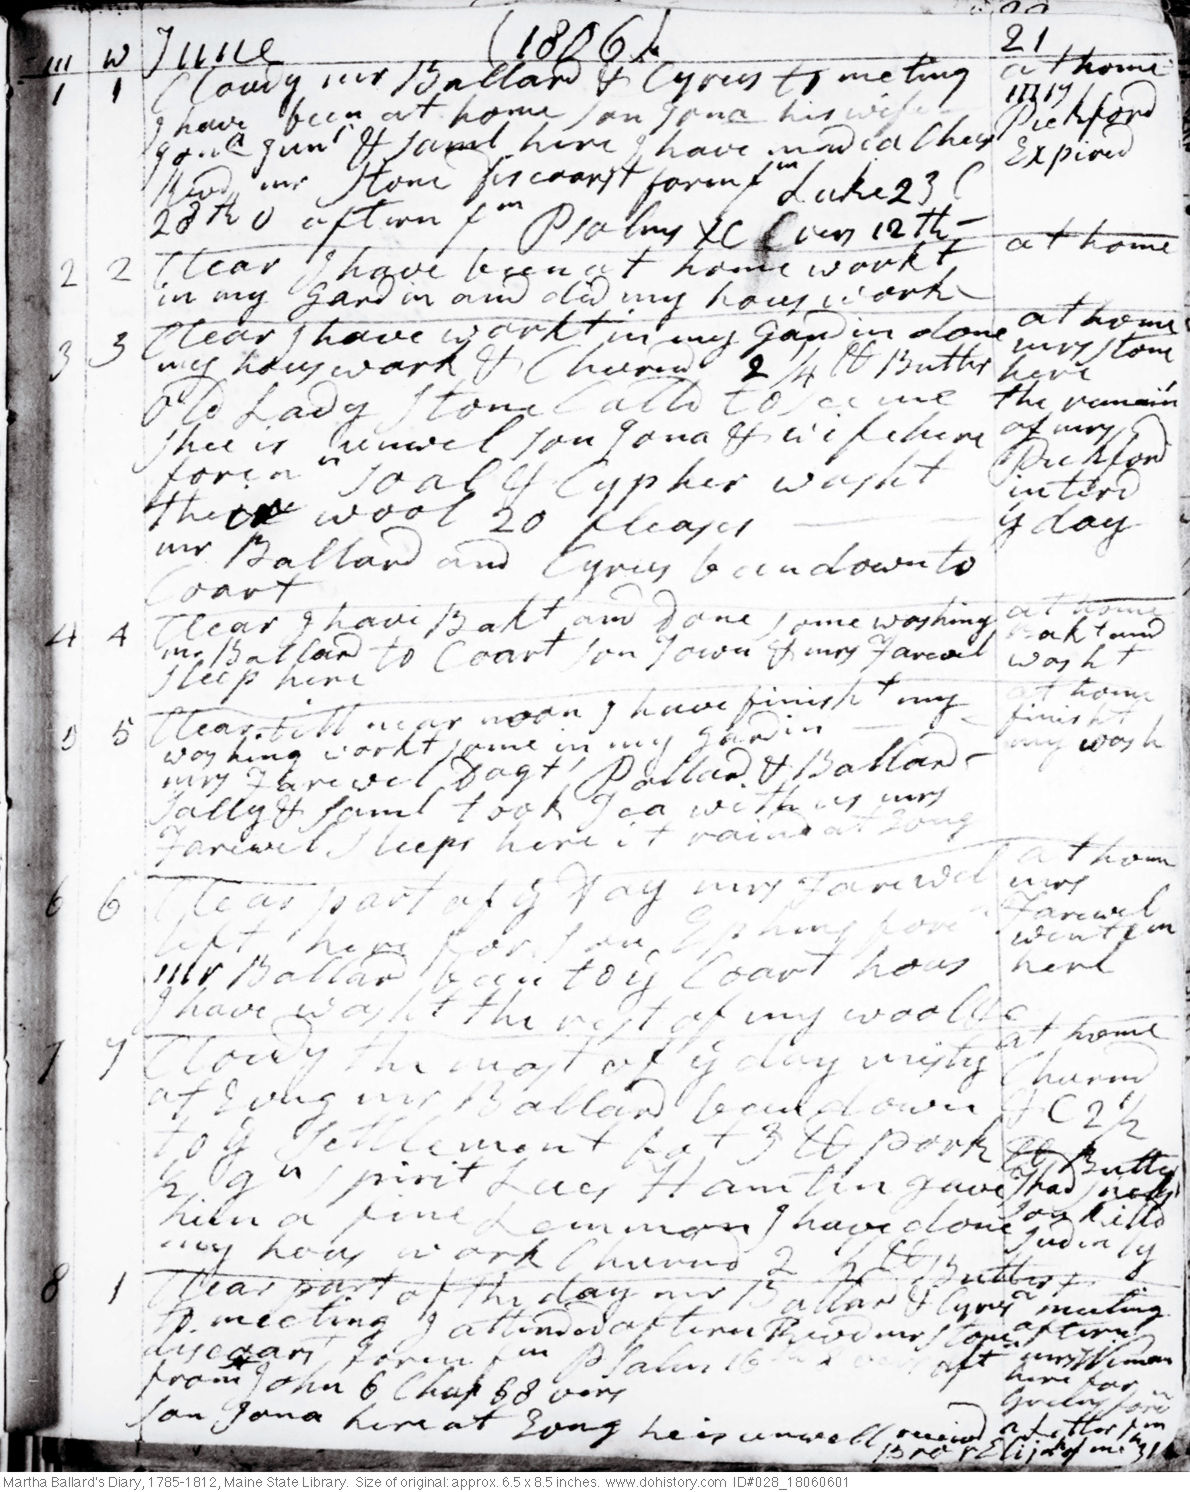 m w June (1806) 21
1 1 Clowdy mr Ballard & Cyrus to meting
I have been at home son Jona his wife
Junr & Saml here I have made a Chees
Revd mr Stone discoarst foren fm Luke 23 C
28th v aftern fm Psalms XC vers 12th
at home
Pickford
Expired
2 2 Clear I have been at home workt
in my gardin and did my hous work
at home
3 3 Clear I have workt in my gardin done
my hous work & Churnd 2 1/4 lb Butter
old Lady Stone Calld to see me
shee is unwel son Jona & wife here
foren
& Cypher washt
their wool 20 fleases
mr Ballard and Cyrus been down to
Coart
at home
mrs Stone
here
the remain
of mrs
Pickford
interd
y day
4 4 Clear I have Bakt and done some washing
mr Ballard to Coart son Town & mrs Farewel
sleep here
at home
Bakt and
washt
5 5 Clear till near noon I have finisht my
washing workt some in my gardin
mrs Farewel Dagt Pollard & Ballard
Sally & Saml took Tea with us mrs
Farewel sleeps here it raind at Evng
at home
finisht
my wash
6 6 Clear part of y Day mrs Farewel
left here for son Ephms foren
mr Ballard been to y Coart hous
I have washt the rest of my wooll
at home
mrs
Farewel
went fm
here
7 7 Clowdy the most of y day misty
at Evng mr Ballard been down
to y settlement bot 3 lb pork
1/2 gn spirit Lucy Hamlin gave
him a fine Lemmon I have done
my hous work Churnd 2 1/2 lb Butter
at home
Churnd
& C 2 1/2
lb Butter
8 1 Clear part of the day mr Ballard & Cyrus
to meeting I attended aftern Revd mr Stone
discoarst foren fm Psalm 16
from John 6 Chap 68 vers
son Jona here at Evng he is unwell
meeting
aftern
here for
received
a Letter fm
Bror Elijah